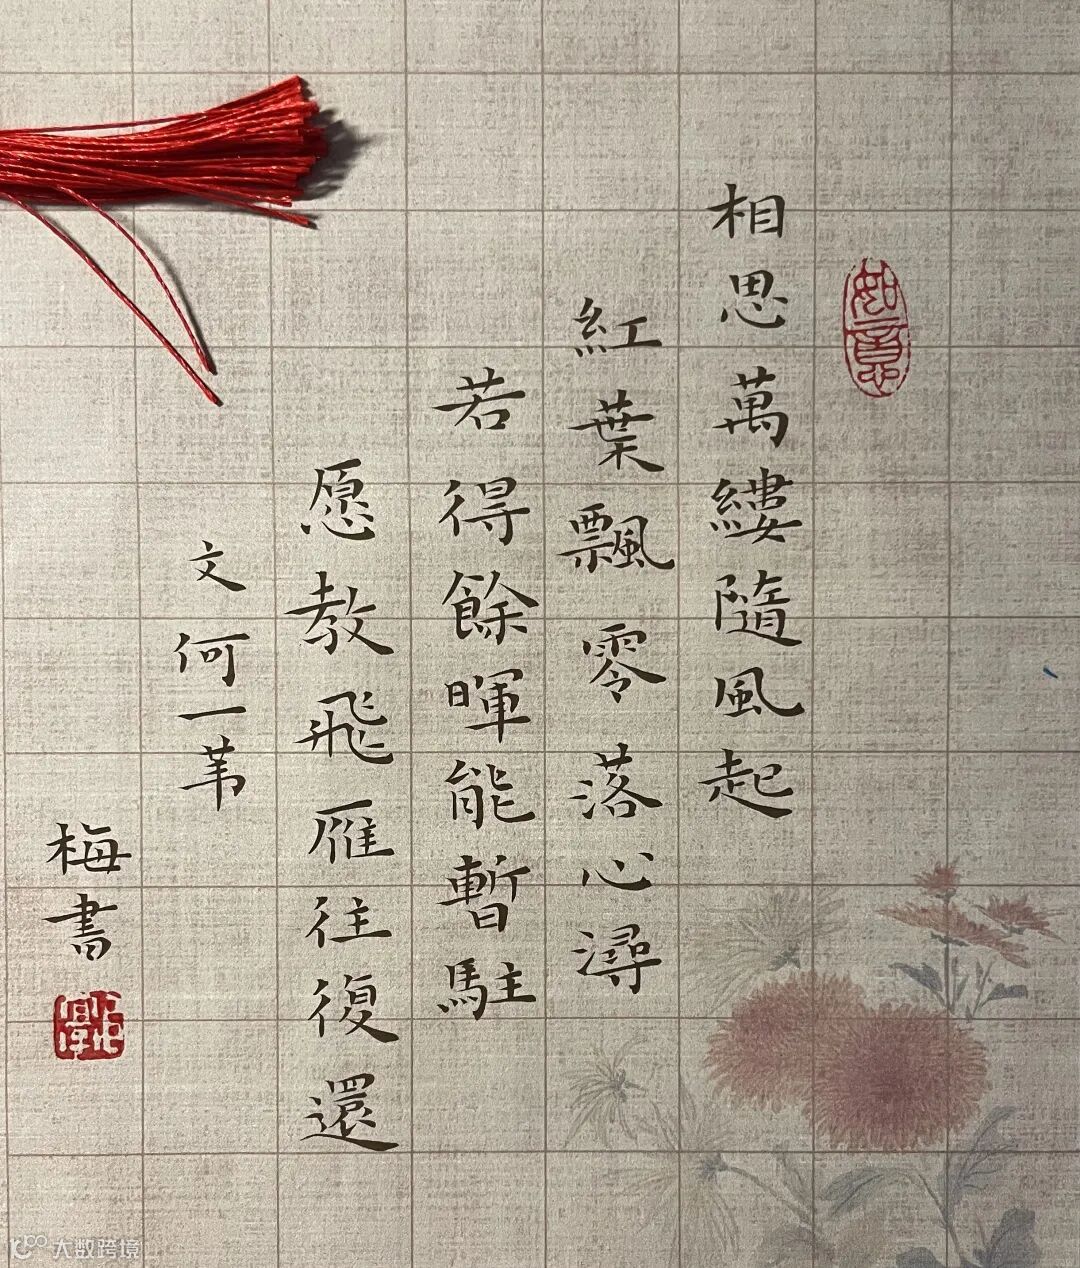 如意
相思萬縷隨風起
紅葉飄零落心潯
若得餘暉能暫駐
愿教飛雁往復還
文何一苇
梅書
大数跨境